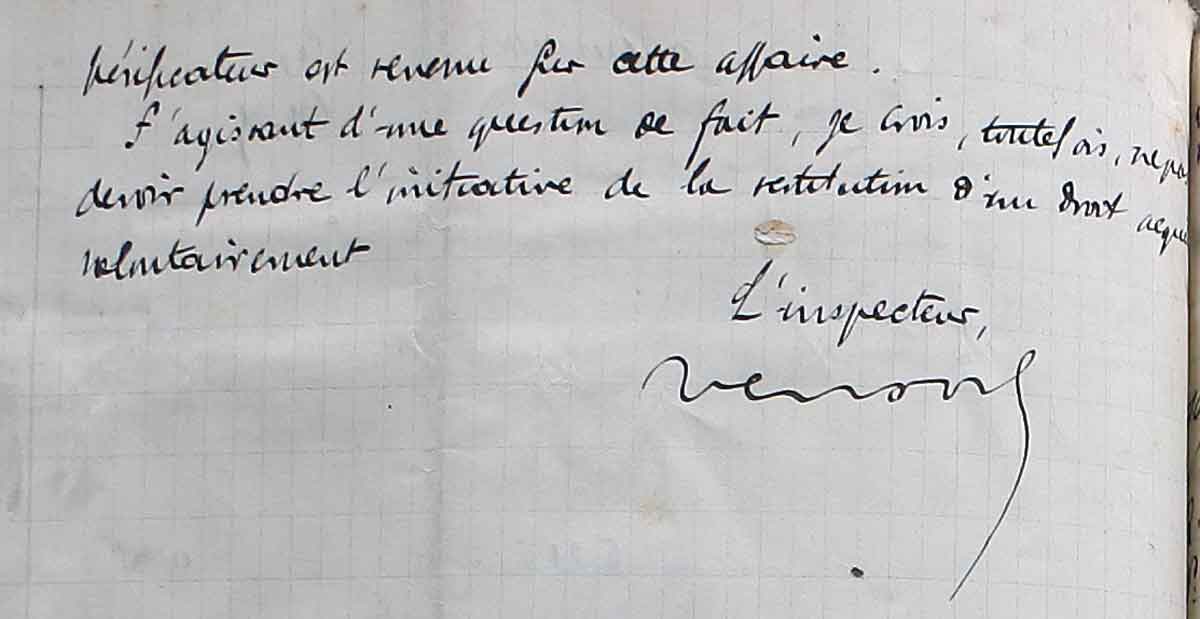 vérificateur est revenu sur cette affaire.
S'agissant d'une question de fait, je crois, toutefois, ne pas
devoir prendre l'initiative de la restitution d'un droit acqu
volontairement
L'inspecteur,